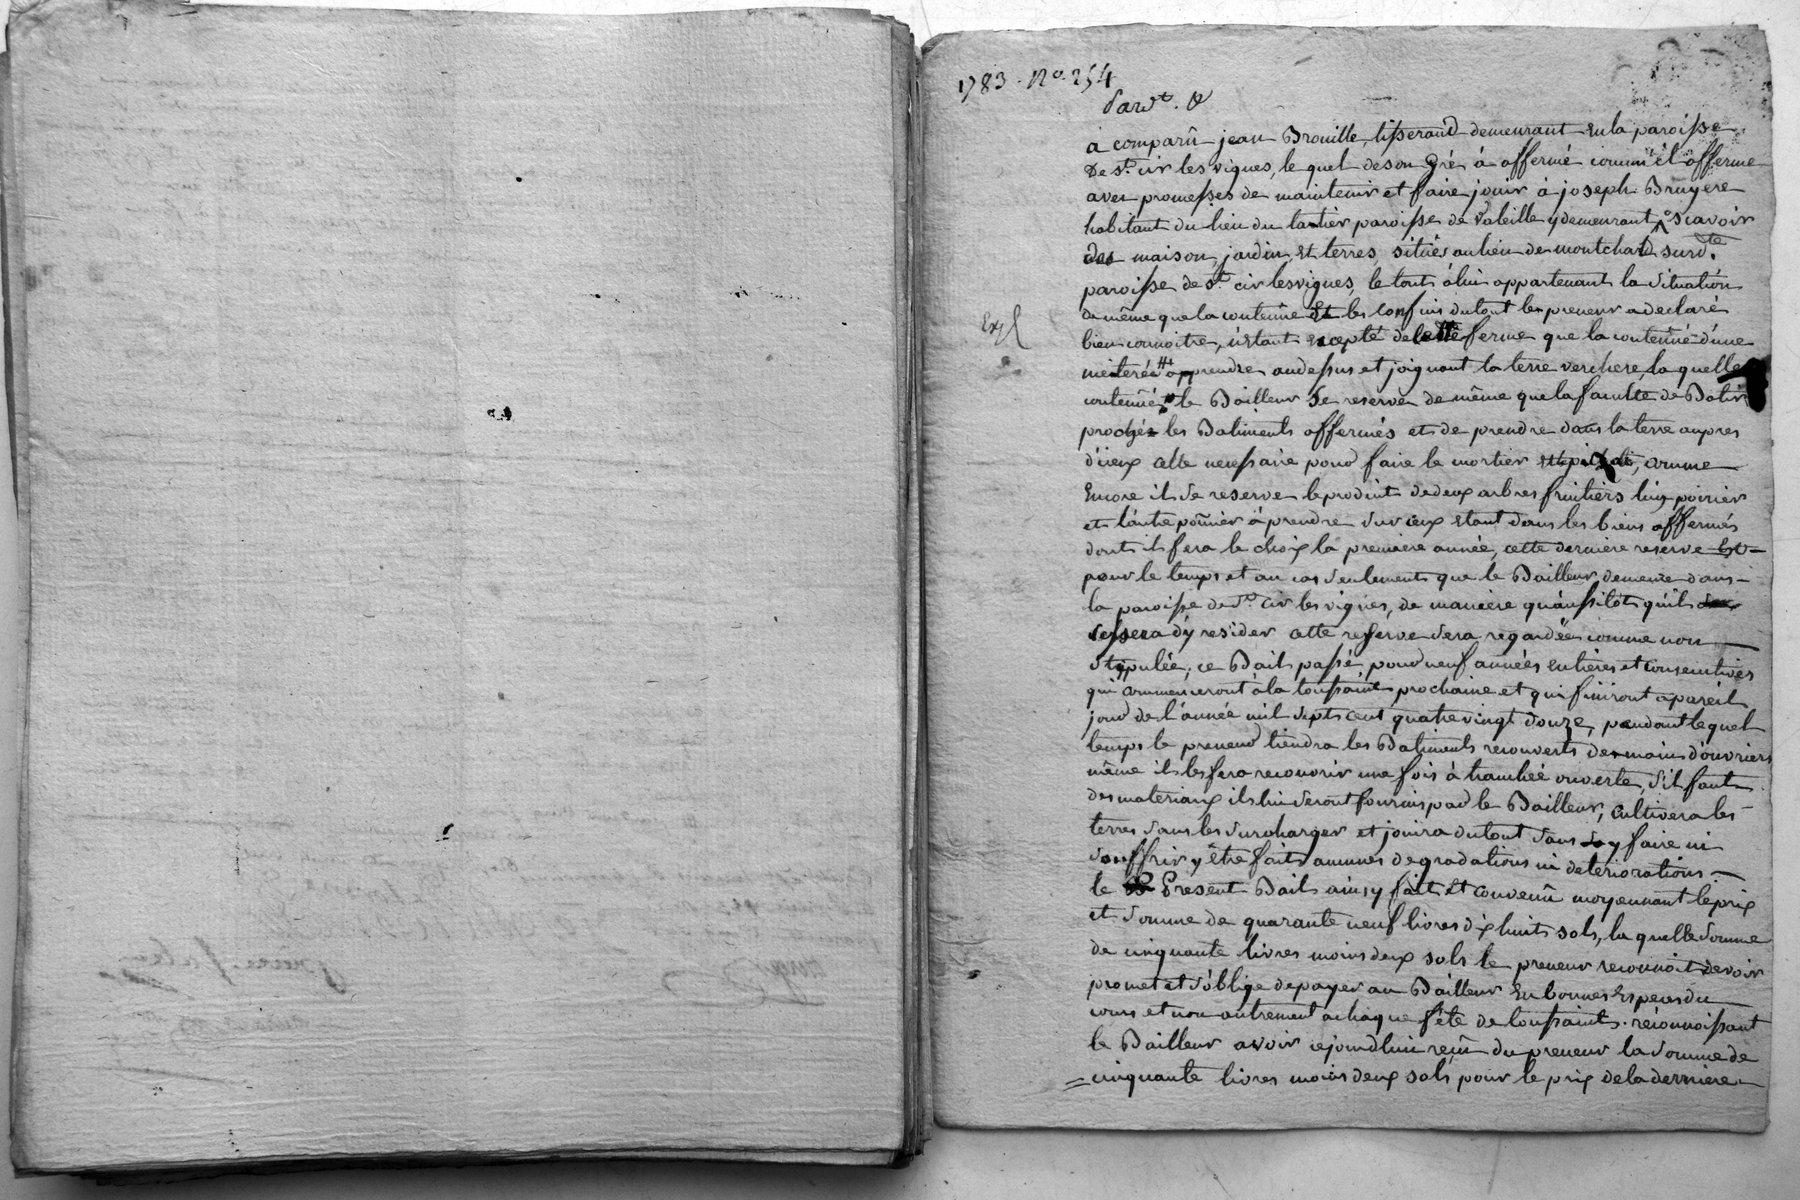 1783. No. 254
Pardt. &
à comparû jean Brouille, tisserand demeurant en la paroisse
de st. cir les vignes, le quel de son gré à affermé comm'él afferme
avec promesses de maintenir et faire jouir à joseph Bruyere
habitant du lieu du tartier paroisse de valeille y demeurant scavoir
des maison, jardin, et terres, situés au lieu de montchard, surdte.
paroisse de st. cir les vignes, le tout à lui appartenant la situation
de même que la contenüe et les confins du tout le preneur a declaré
bien connoitre, n'étant excepté de cette ferme que la contenüe d'une
meterée à prendre au dessus et joignant la terre verchere la quelle
contenüe le Bailleur se reserve de même que la faculté de Batir
proche les Batiments affermés et de prendre dans la terre aupres
d'iceux celle necessaire pour faire le mortier, comme
Encore il se reserve le produit de deux arbres fruitiers l'un poirier
et l'autre pomier à prendre sur ceux étant dans les biens affermés
dont il fera le choix la premiere année, cette derniere reserve est
pour le temps et au cas seulement que le Bailleur demeure dans
la paroisse de st. cir les vignes, de maniere qu'aussitôt qu'il
cessera d'y resider cette reserve sera regardée comme non
stypulée, ce Bail passé pour neuf années entieres et consecutives
qui commenceront à la toussaint prochaine et qui finiront a pareil
jour de l'année mil sept cent quatre vingt douze, pendant le quel
temps le preneur tiendra les Batiments recouverts de main d'ouvriers
même il les fera recouvrir une fois à tranchée ouverte, s'il faut
des materiaux ils lui seront fournis par le Bailleur, cultivera les
terres sans les surcharger et jouira du tout sans y faire ni
souffrir y être fait aucunes degradations ni deteriorations
le Present Bail ainsy fait et convenû moyennant le prix
et somme de quarante neuf livres dix huit sols, la quelle somme
de cinquante livres moins deux sols le preneur reconnoit devoir
promet et s'oblige de payer au Bailleur en bonnes especes du
cours et non autrement a chaque fête de toussaint. reconnoissant
le Bailleur avoir cejourd'hui reçû du preneur la somme de
cinquante livres moins deux sols pour le prix de la derniere